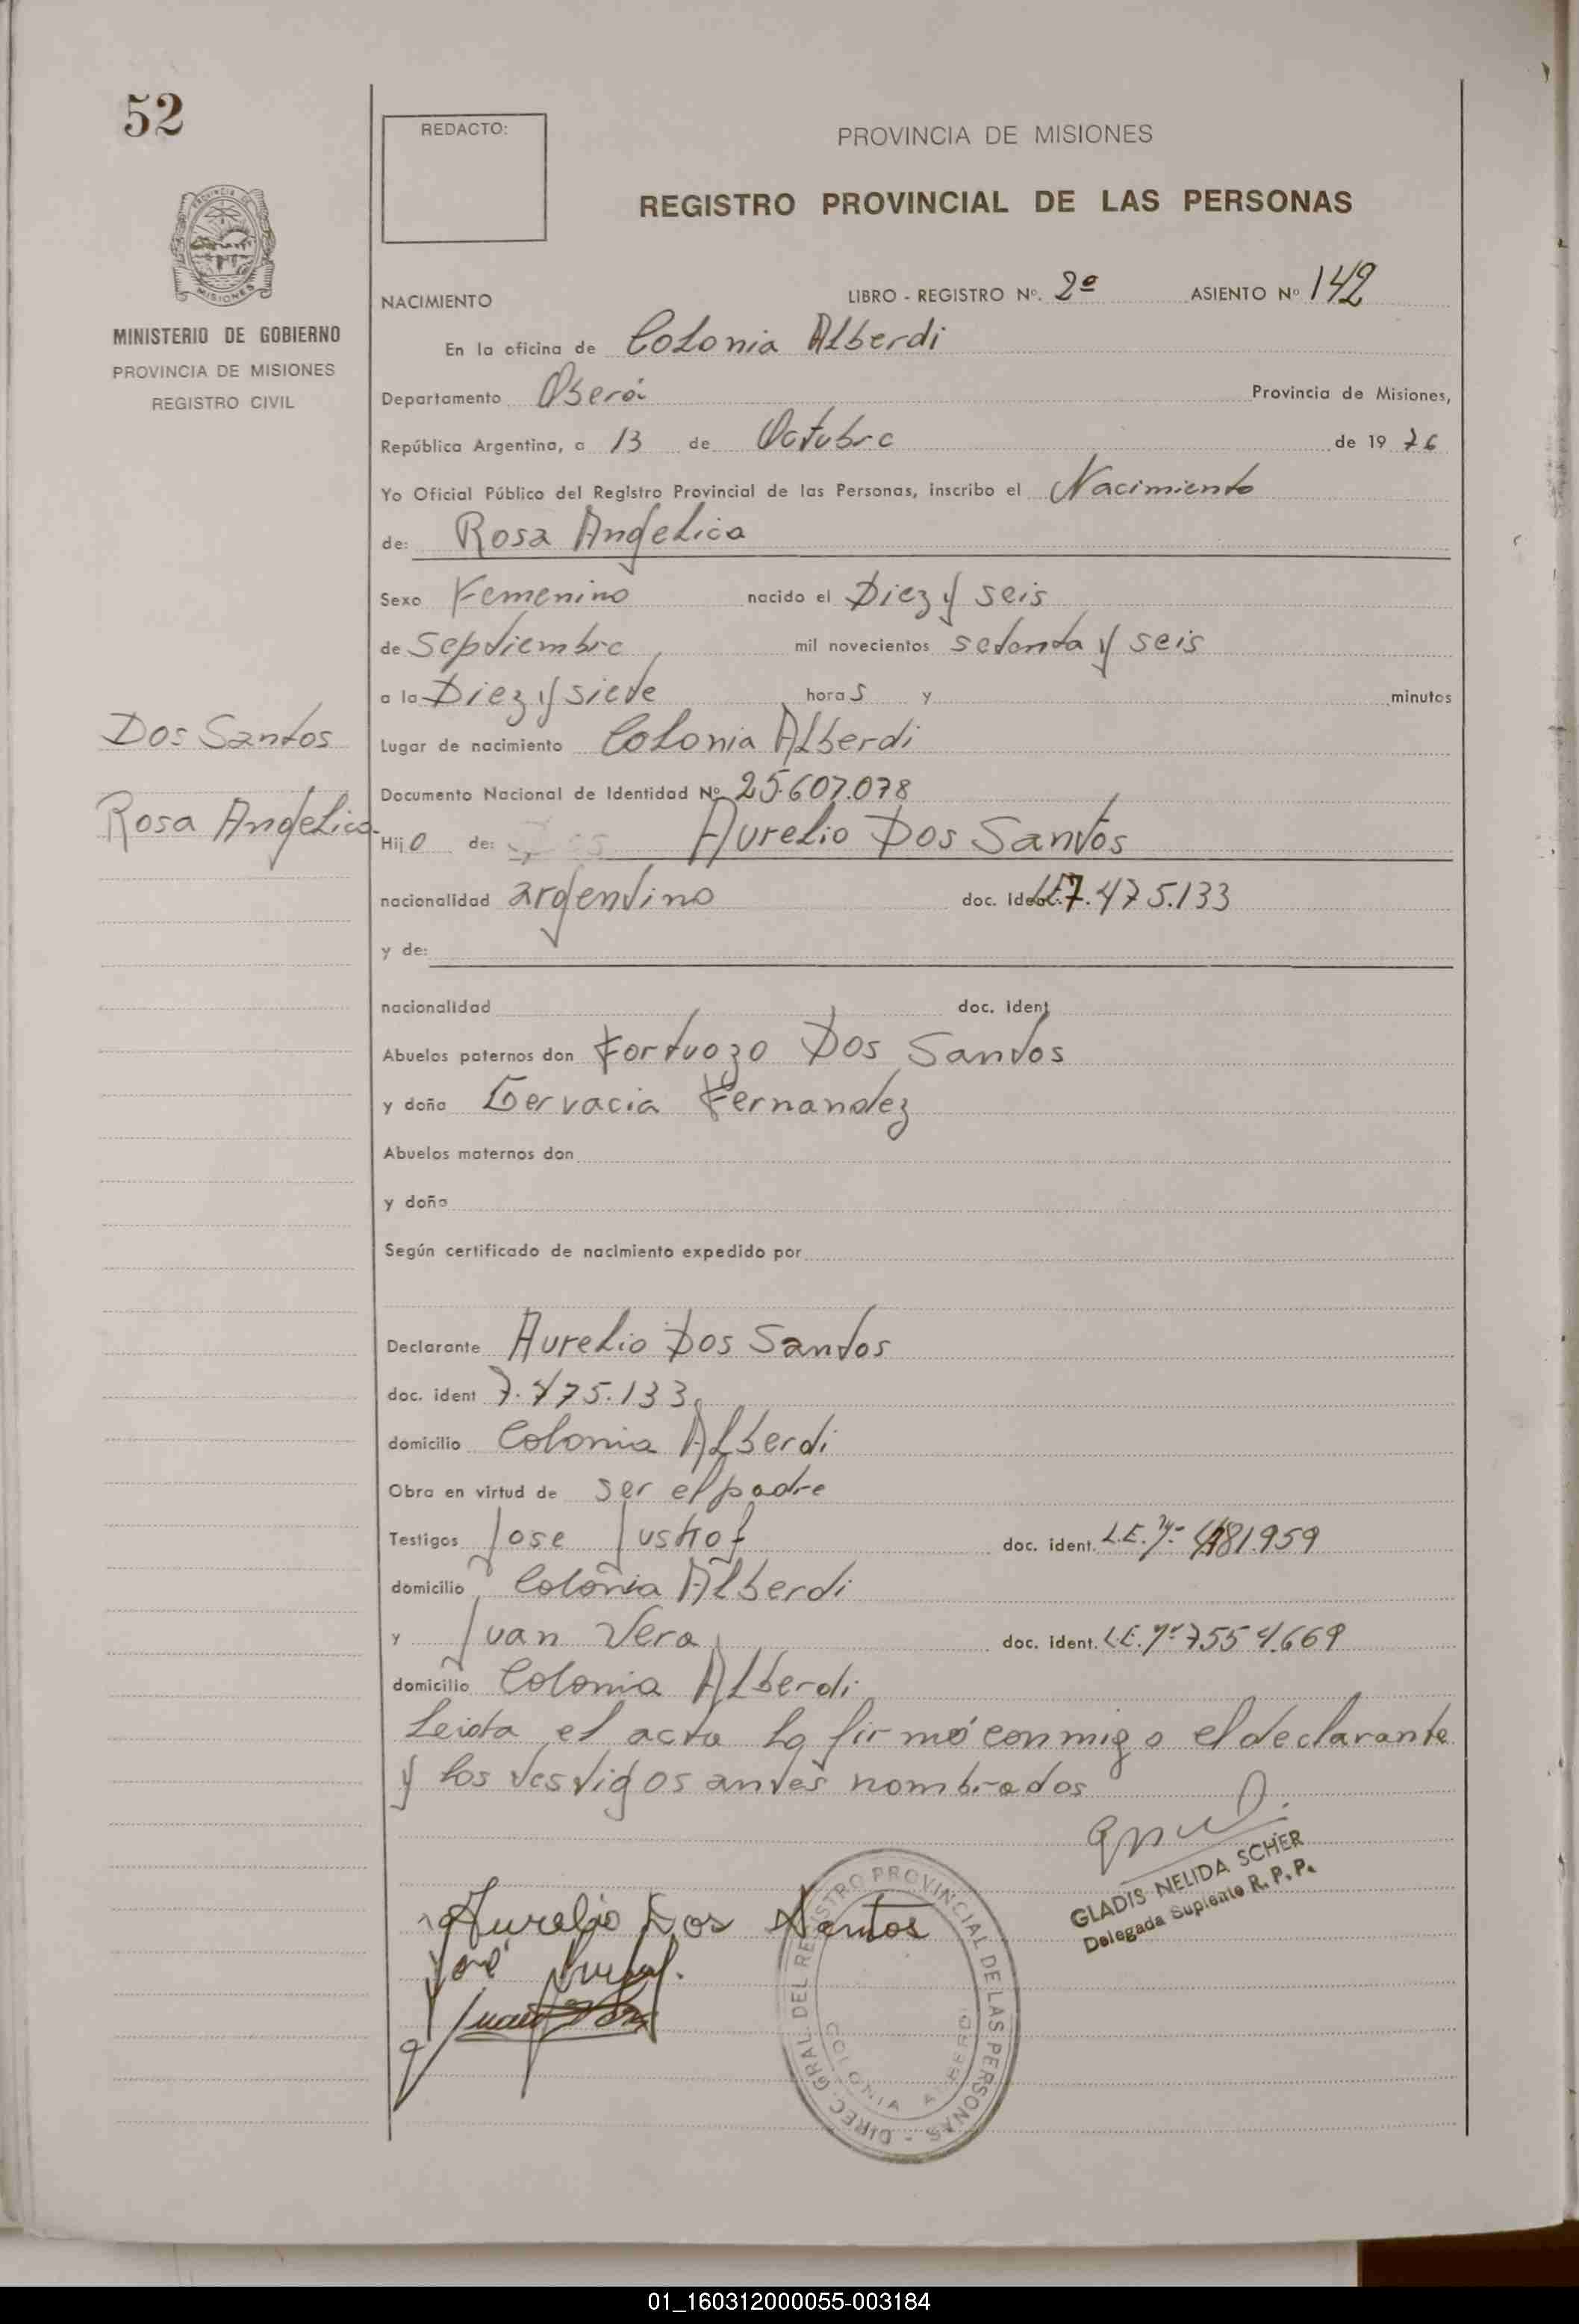 52
REDACTO:
PROVINCIA DE MISIONES
REGISTRO PROVINCIAL DE LAS PERSONAS
MINISTERIO DE GOBIERNO
PROVINCIA DE MISIONES
REGISTRO CIVIL
NACIMIENTO LIBRO - REGISTRO Nº. 2º ASIENTO Nº 142
En la oficina de Colonia Alberdi
Departamento Oberá Provincia de Misiones,
República Argentina, a 13 de Octubre de 1976
Yo Oficial Público del Registro Provincial de las Personas, inscribo el Nacimiento
de: Rosa Angelica
Sexo Femenino nacido el Diez y seis
de Septiembre mil novecientos setenta y seis
a la Diez y siete horas y minutos
Dos Santos
Rosa Angelica
Lugar de nacimiento Colonia Alberdi
Documento Nacional de Identidad Nº 25.607.078
Hijo de: Aurelio Dos Santos
nacionalidad argentino doc. ident. L.E. 7.475.133
y de:
nacionalidad doc. ident
Abuelos paternos don Fortuozo Dos Santos
y doña Gervacia Fernandez
Abuelos maternos don
y doña
Según certificado de nacimiento expedido por
Declarante Aurelio Dos Santos
doc. ident 7.475.133
domicilio Colonia Alberdi
Obra en virtud de ser el padre
Testigos Jose doc. ident. L.E. Nº
domicilio Colonia Alberdi
y Juan Vera doc. ident. L.E. Nº 7554.669
domicilio Colonia Alberdi
Leida el acta la firmó conmigo el declarante
y los testigos antes nombrados
GLADIS NELIDA SCHER
Delegada Suplente R. P. P.
Aurelio Dos Santos
José
Juan
DIREC. GRAL. DEL REGISTRO PROVINCIAL DE LAS PERSONAS
COLONIA ALBERDI
01_160312000055-003184